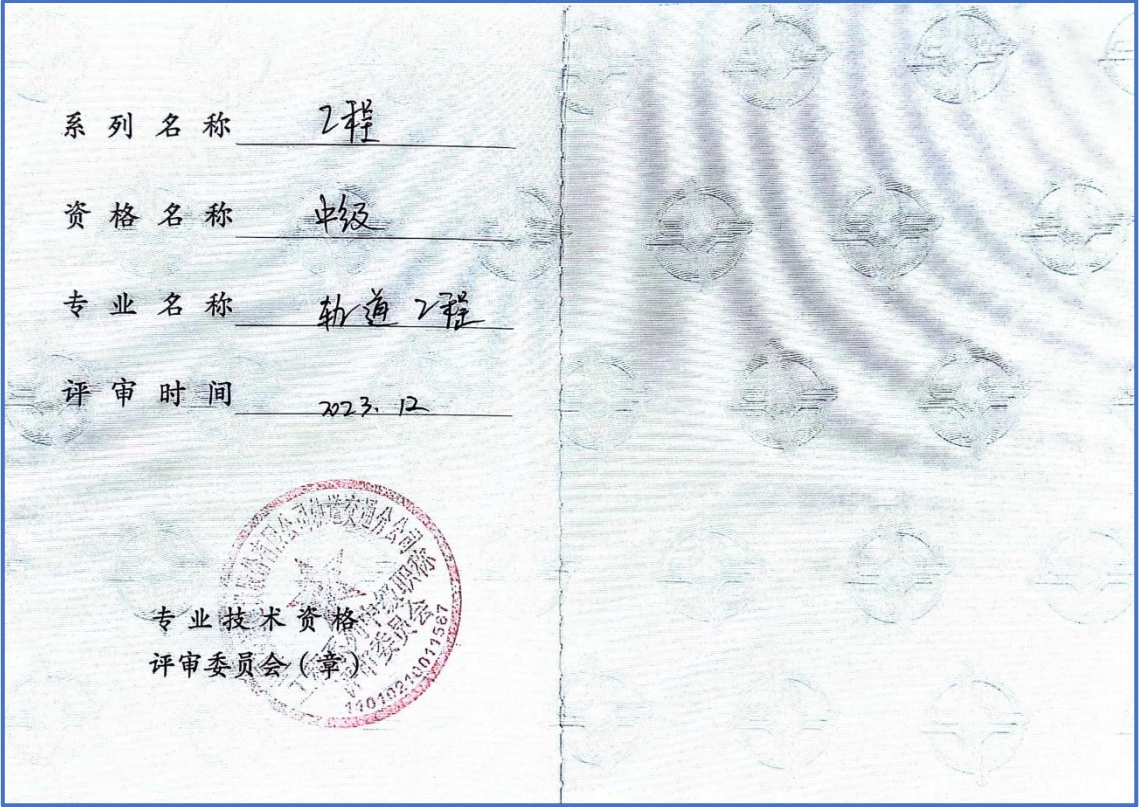 系列名称 工程
资格名称 中级
专业名称 轨道工程
评审时间 2023.12
股份有限公司轨道交通分公司
工程系列中级职称
评审委员会
11010210011587
专业技术资格
评审委员会(章)